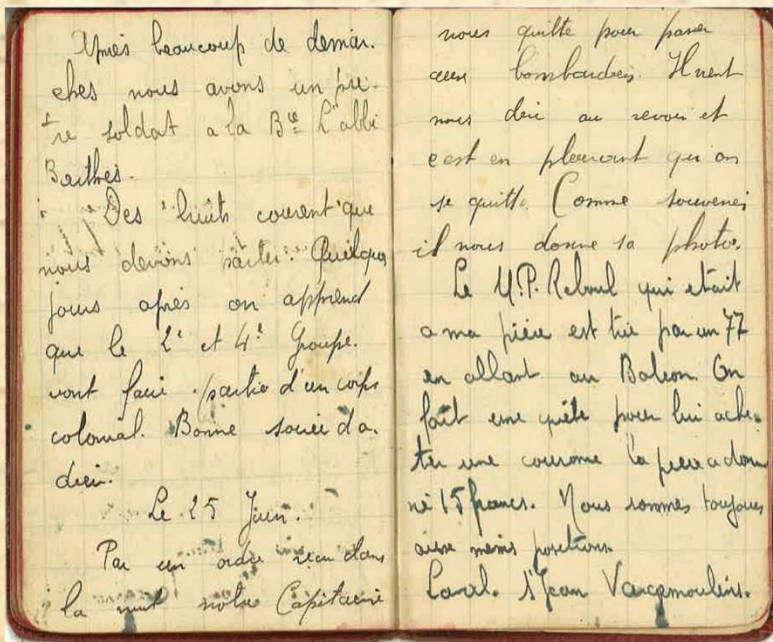 Après beaucoup de démar.
ches nous avons un prê-
tre soldat a la Bie L'abbé
Barthes.
Des bruits courent que
nous devions partir. Quelques
jours après on apprend
que le 2e et 4e Groupe.
vont faire partie d'un corps
colonial. Bonne soirée d'a.
dieu.
Le 25 Juin.
Par un ordre recu dans
la nuit notre Capitaine
nous quitte pour passer
aux bombardiers. Il vient
nous dire au revoir et
c'est en pleurant qu'on
se quitte. Comme souvenir
il nous donne sa photo.
Le M.P. Reboul qui etait
a ma pièce est tué par un 77
en allant au Balcon. On
fait une quête pour lui ache-
ter une couronne la piece a don
né 15 francs. Nous sommes toujours
aux memes positions.
Laval. St Jean Vargemoulins.